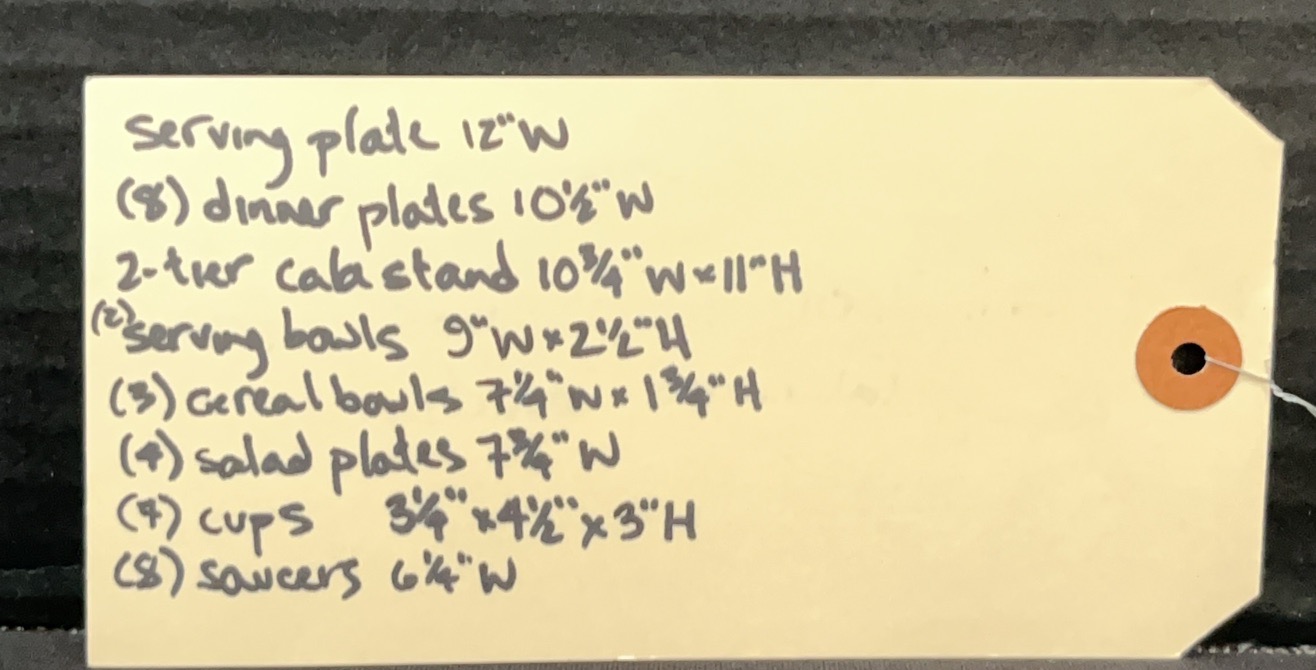 serving plate 12"W
(8) dinner plates 10½"W
2-tier cake stand 10¾"W x 11"H
(2) serving bowls 9"W x 2½"H
(3) cereal bowls 7¼"W x 1¾"H
(4) salad plates 7¾"W
(7) cups 3¼" x 4½" x 3"H
(8) saucers 6¼"W